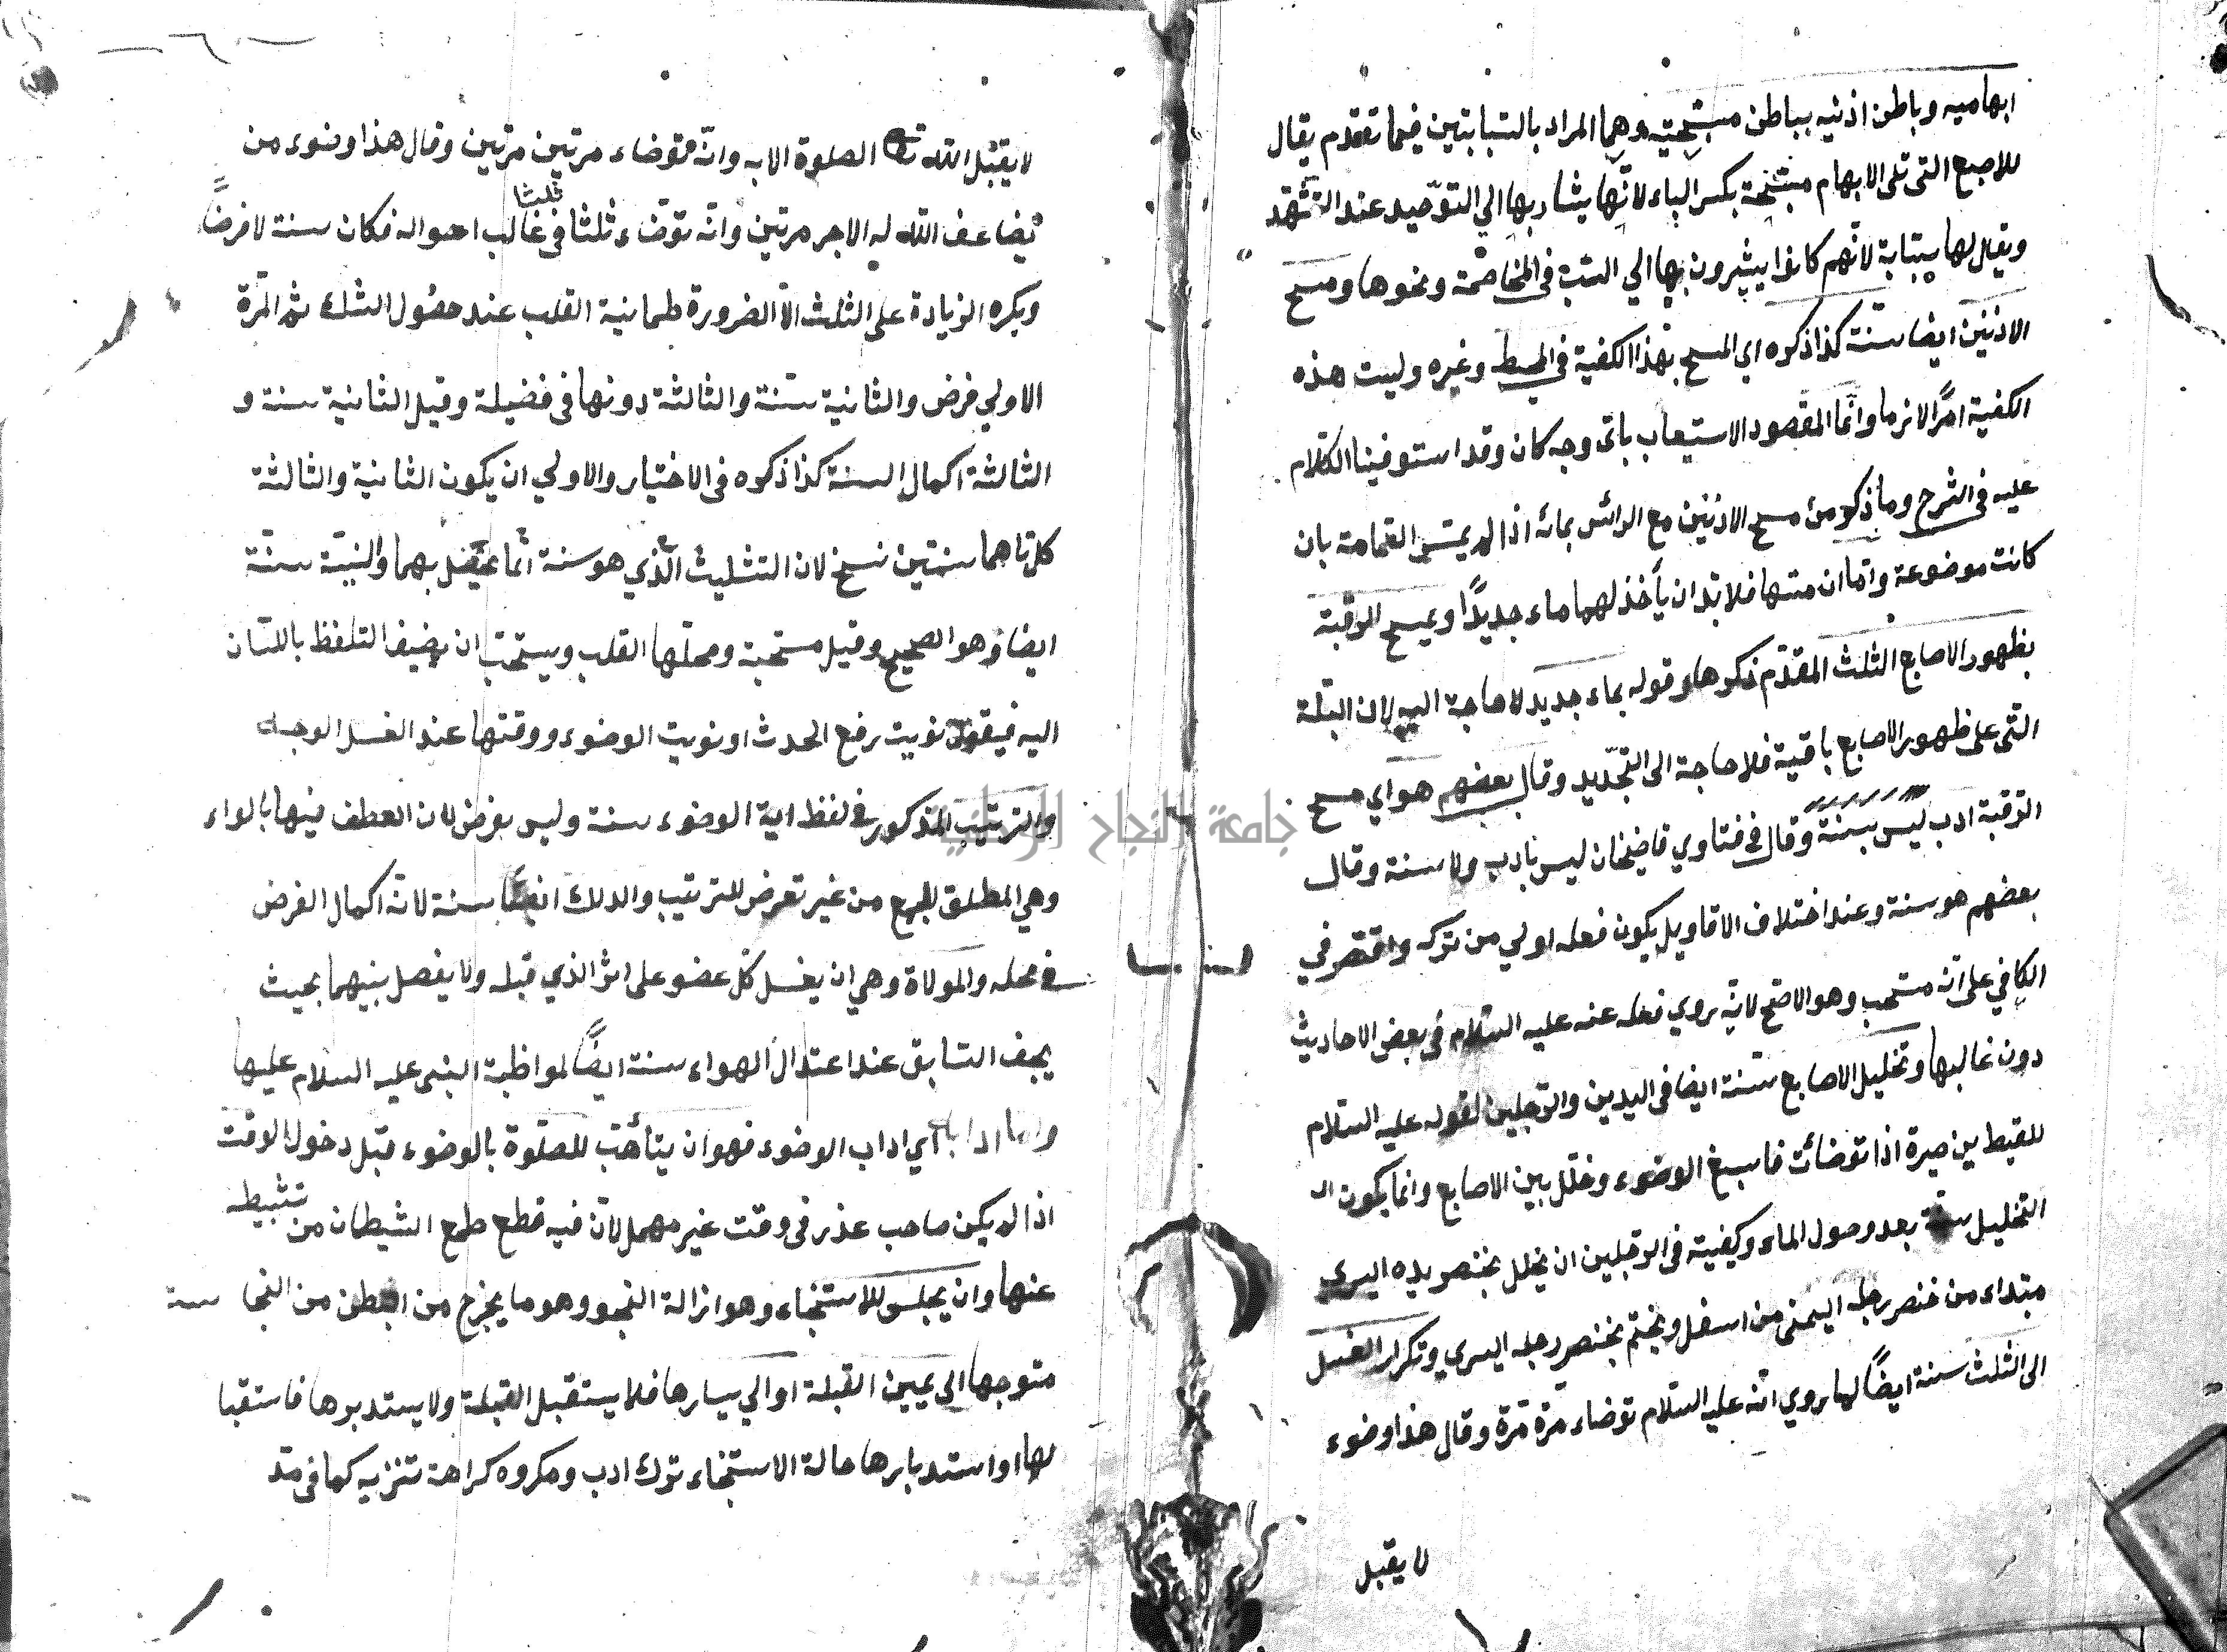 ابهاميه وباطن اذنيه بباطن مسبّحتيه وهما المراد بالسّبابتين فيما تقدّم يقال
للاصبع التى تلى الابهام مسبّحة بكسر الباء لانّها يشار بها الي التّوحيد عند التشهّد
ويقال لها سبّابة لانّهم كانوا يشيرون بها الي السّبّ فى المخاصمة ونحوها ومسح
الاذنين ايضا سنّة كذا ذكره اى المسح بهذا الكفية فى المحيط وغيره وليست هذه
الكفية امرًا لازما وانّما المقصود الاستيعاب باىّ وجه كان وقد استوفينا الكلام
عليه فى الشرح وما ذكر من مسح الاذنين مع الرائس بمائه اذا لم يمسّ العمامة بان
كانت موضوعة وامّا ان مسّها فلا بدّ ان يأخذ لهما ماء جديدًا ويمسح الرقبة
بظهور الاصابع الثلث المقدّم ذكرها وقوله بماء جديد لا حاجة اليه لان البلّة
التى على ظهور الاصابع باقية فلا حاجة الى التجّديد وقال بعضهم هو اي مسح
الرّقبة ادب ليس بسنّة وقال فى فتاوي قاضيخان ليس بادب ولا سنة وقال
بعضهم هو سنة وعند اختلاف الاقاويل يكون فعله اولي من تركه واقتصر في
الكافي على انّه مستحب وهو الاصّح لانّه روي فعله عنه عليه السّلام فى بعض الاحاديث
دون غالبها وتخليل الاصابع سنّة ايضا فى اليدين والرّجلين لقوله عليه السّلام
للقيط بن صبرة اذا توضائت فاسبغ الوضوء وخلّل بين الاصابع وانما يكون
التخليل سنّة بعد وصول الماء وكيفيته فى الرّجلين ان يخلل بخنصر يده اليسرى
مبتداء من خنصر رجله اليمنى من اسفل ويختم بخنصر رجله اليسري وتكرار الغسل
الى الثلث سنة ايضًا لما روي انّه عليه السّلام توضاء مرّة مرّة وقال هذا وضوء
لا يقبل
لا يقبل الله تعا الصلوة الا به وانّه توضاء مرتين مرتين وقال هذا وضوء من
يضاعف الله له الاجر مرتين وانّه توضّاء ثلثا ثلثا فى غالب احواله فكان سنة لا فرضًا
ويكره الزيادة على الثلث الّا لضرورة طمانية القلب عند حصُول الشك ثم المرّة
الاولي فرض والثانية سنّة والثالثة دونها فى فضيلة وقيل الثانية سنة و
الثالثة اكمال السنة كذا ذكره فى الاختيار والاولي ان يكون الثانية والثالثة
كلتاهما سنتين نسخ لان التثليث الّذي هو سنة انّما يحصل بهما والنيّة سنّة
ايضا وهو الصحيح وقيل مستحبة ومحلّها القلب ويستحبّ ان يضيف التلفظ باللسّان
اليه فيقول نويت رفع الحدث او نويت الوضوء ووقتها عند الغسل الوجه
والترتيب المذكور فى لفظ اية الوضوء سنة وليس بفرض لان العطف فيها بالواو
وهي المطلق للجمع من غير تعرض للترتيب والدلك ايضا سنة لانّه اكمال الفرض
فى محله والمولاة وهي ان يغسل كلّ عضو على اثر الذي قبله ولا يفصل بينهما بحيث
يجف السّابق عند اعتدال الهواء سنة ايضًا لمواظبة النبى عليه السلام عليها
واما ادابه اي اداب الوضوء فهو ان يتأهّب للصّلوة بالوضوء قبل دخول الوقت
اذا لم يكن صاحب عذر فى وقت غير مهمل لانّ فيه قطع طمع الشيطان من تثبيطه
عنها وان يجلس للاستنجاء وهو ازالة النجو وهو ما يخرج من البطن من النجاسة
متوجها الى يمين القبلة او الي يسارها فلا يستقبل القبلة ولا يستدبرها فاستقبا
لها او استدبارها حالة الاستنجاء ترك ادب ومكروه كراهة تنزيه كما فى مدّ
جامعة النجاح الوطنية